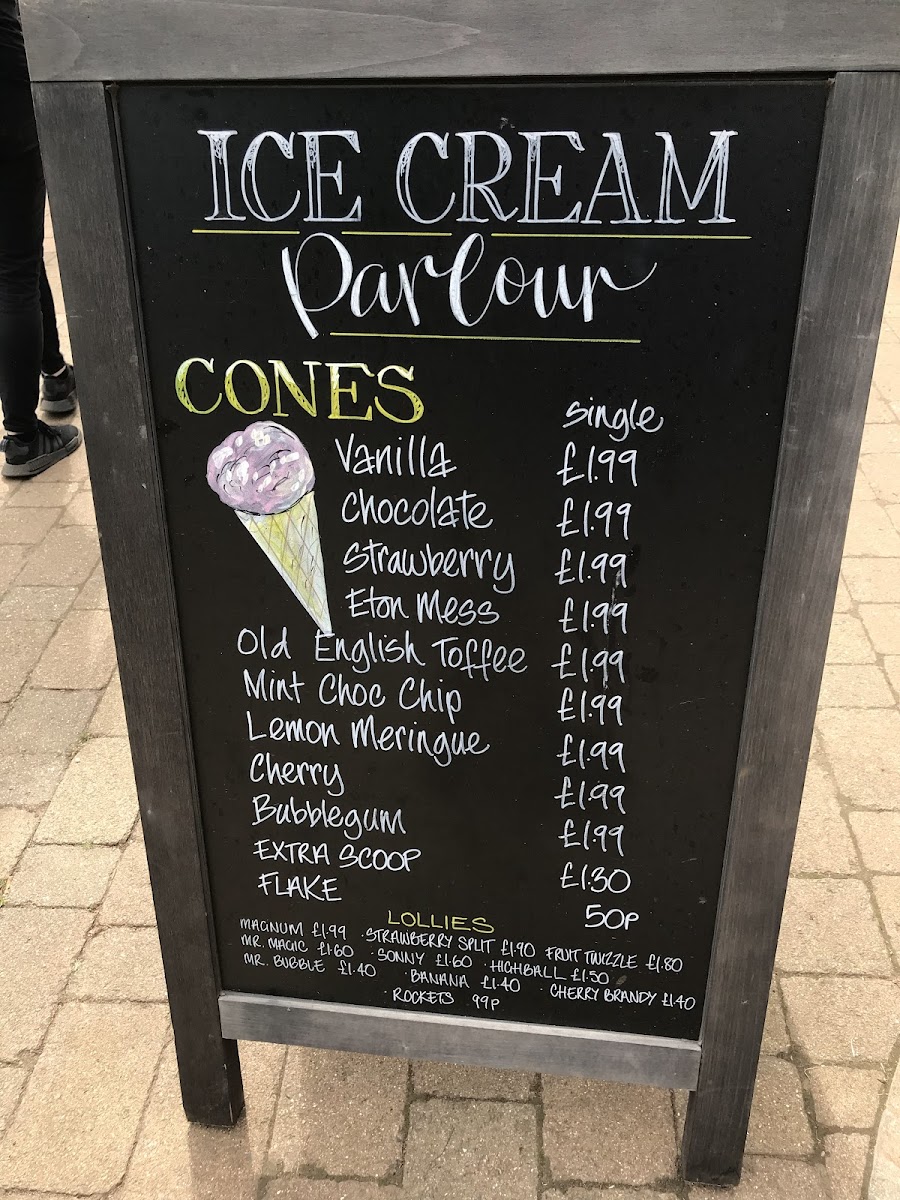 ICE CREAM
Parlour
CONES
single
Vanilla £1.99
Chocolate £1.99
Strawberry £1.99
Eton Mess £1.99
Old English Toffee £1.99
Mint Choc Chip £1.99
Lemon Meringue £1.99
Cherry £1.99
Bubblegum £1.99
EXTRA SCOOP £1.30
FLAKE 50P
LOLLIES
MAGNUM £1.99 · STRAWBERRY SPLIT £1.90 FRUIT TWIZZLE £1.80
MR. MAGIC £1.60 · SONNY £1.60 · HIGHBALL £1.50
MR. BUBBLE £1.40 · BANANA £1.40 · CHERRY BRANDY £1.40
· ROCKETS 99P